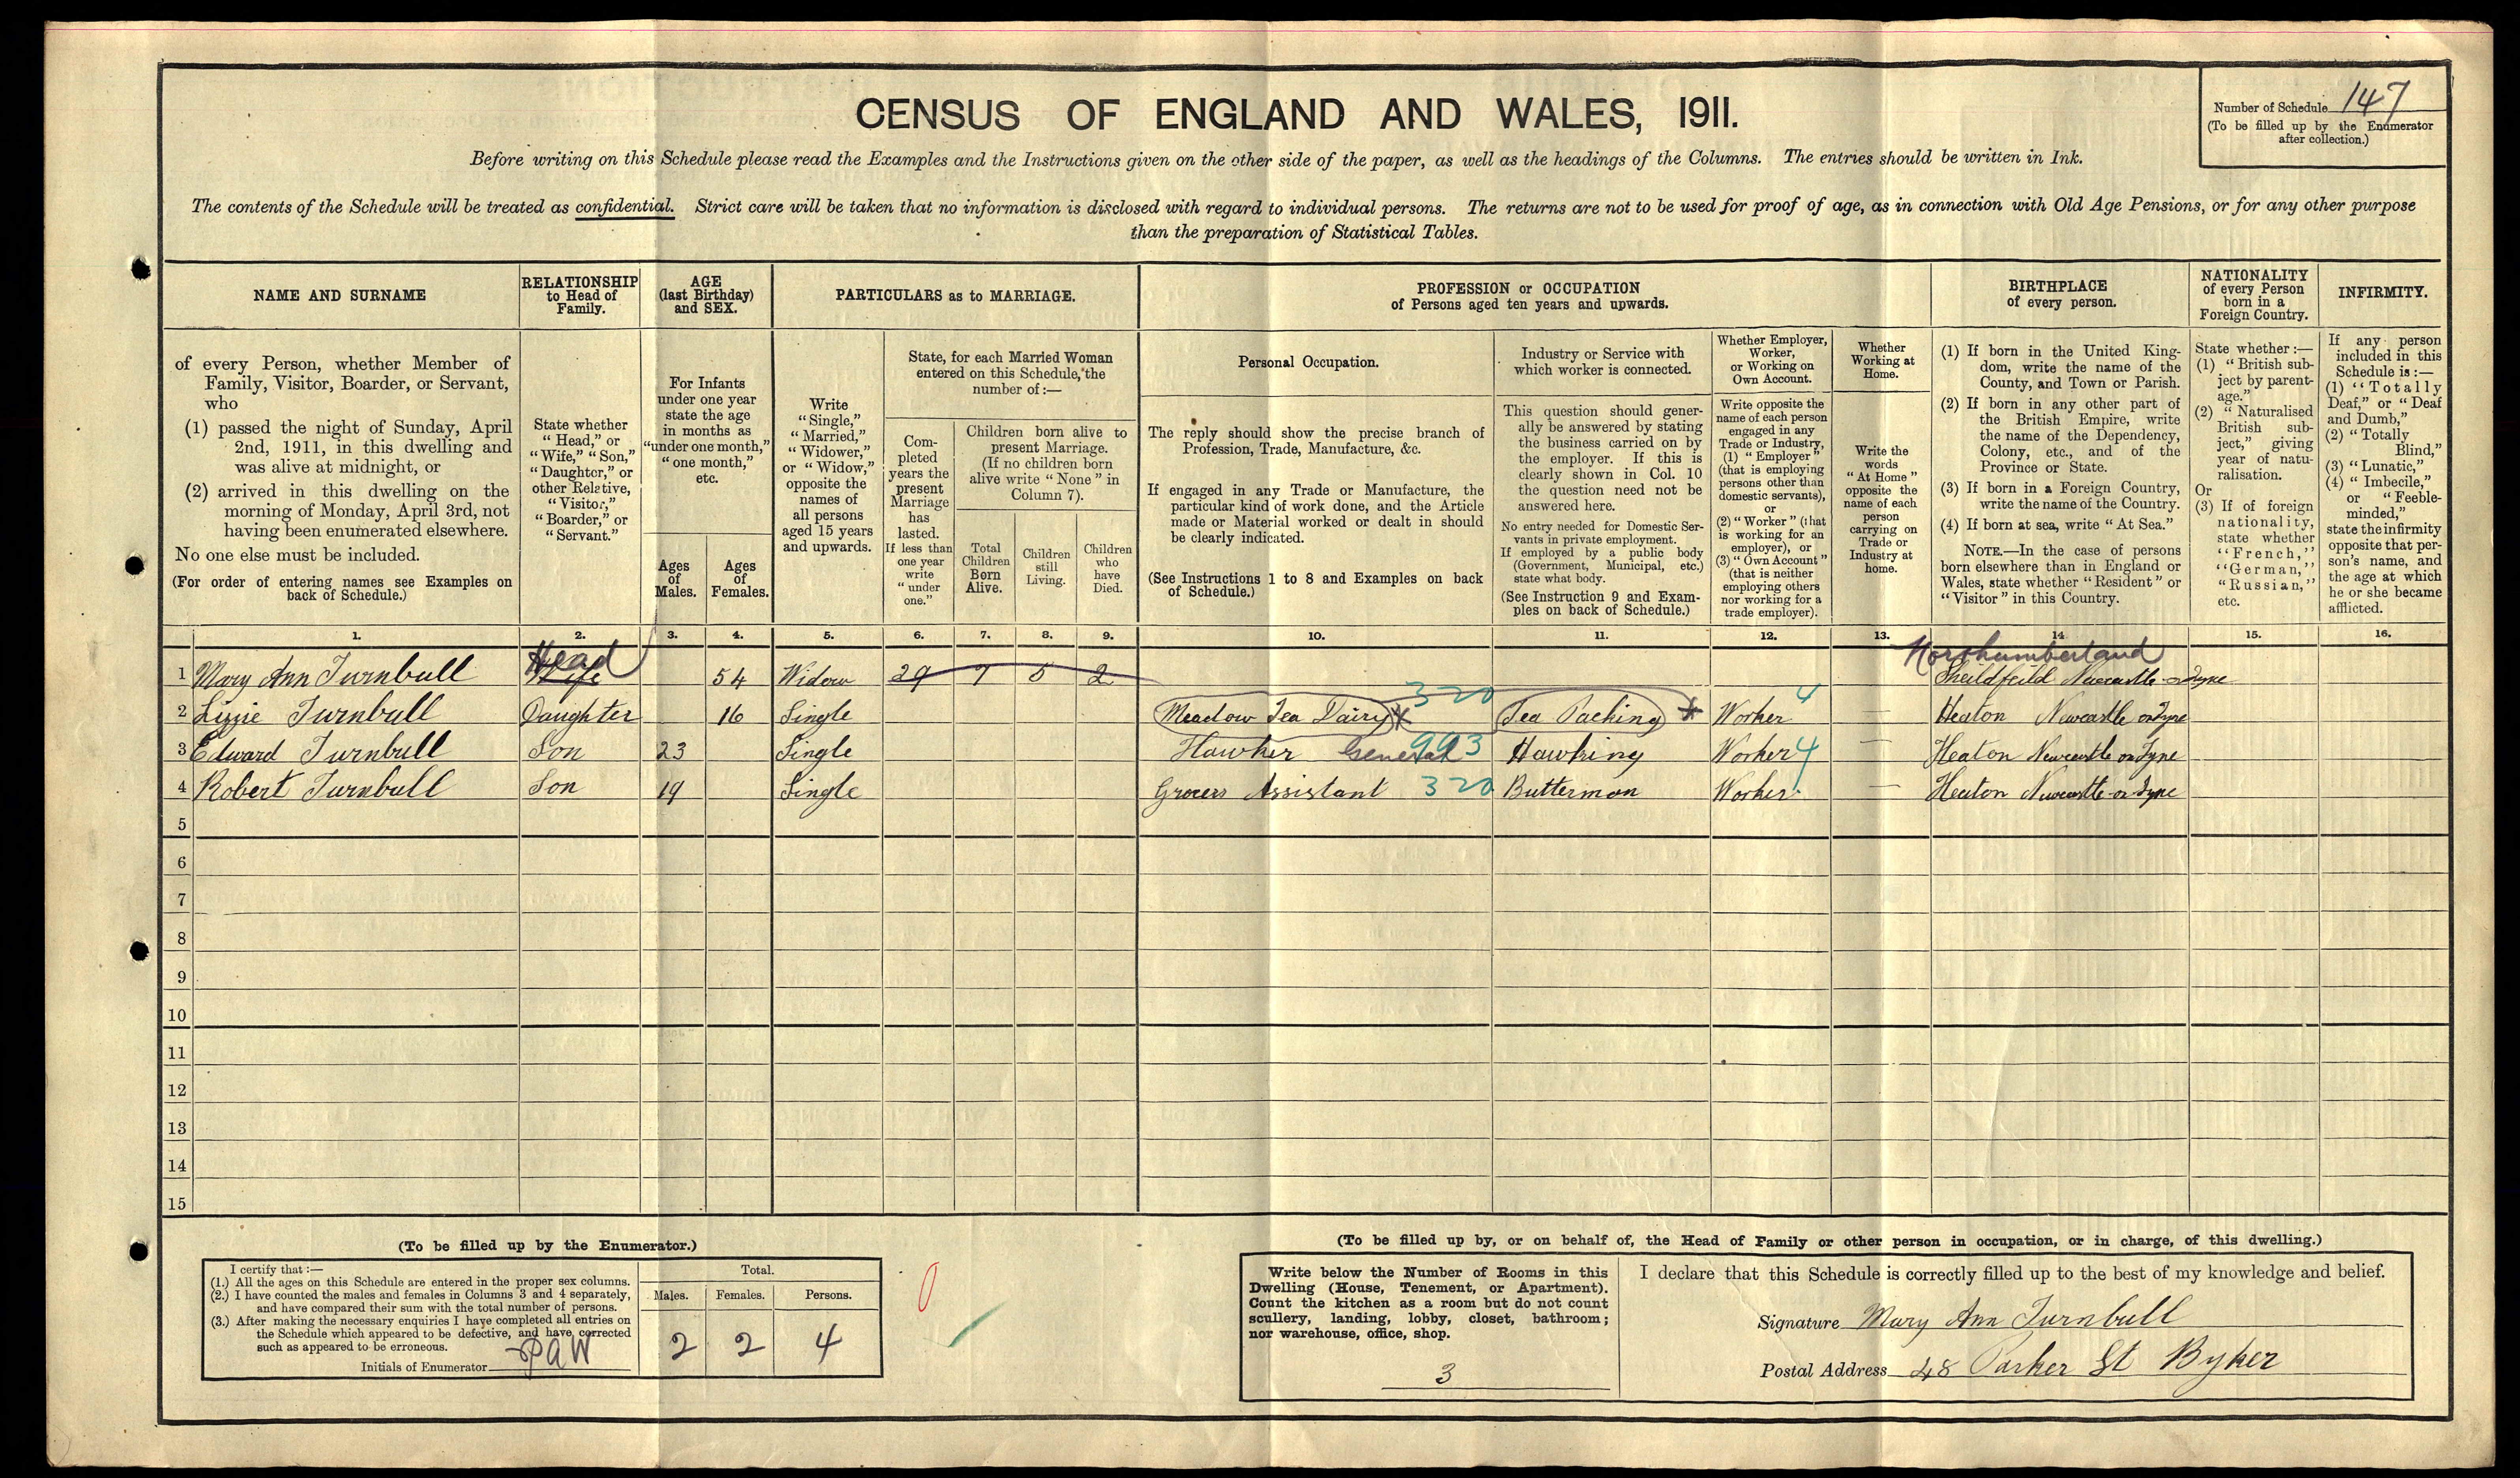 CENSUS OF ENGLAND AND WALES, 1911.
Number of Schedule 147
(To be filled up by the Enumerator
after collection.)
Before writing on this Schedule please read the Examples and the Instructions given on the other side of the paper, as well as the headings of the Columns. The entries should be written in Ink.
The contents of the Schedule will be treated as confidential. Strict care will be taken that no information is disclosed with regard to individual persons. The returns are not to be used for proof of age, as in connection with Old Age Pensions, or for any other purpose
than the preparation of Statistical Tables.
NAME AND SURNAME
of every Person, whether Member of
Family, Visitor, Boarder, or Servant,
who
(1) passed the night of Sunday, April
2nd, 1911, in this dwelling and
was alive at midnight, or
(2) arrived in this dwelling on the
morning of Monday, April 3rd, not
having been enumerated elsewhere.
No one else must be included.
(For order of entering names see Examples on
back of Schedule.)
RELATIONSHIP
to Head of
Family.
State whether
"Head," or
"Wife," "Son,"
"Daughter," or
other Relative,
"Visitor,"
"Boarder," or
"Servant."
AGE
(last Birthday)
and SEX.
For Infants
under one year
state the age
in months as
"under one month,"
"one month,"
etc.
Ages
of
Males.
Ages
of
Females.
PARTICULARS as to MARRIAGE.
Write
"Single,"
"Married,"
"Widower,"
or "Widow,"
opposite the
names of
all persons
aged 15 years
and upwards.
State, for each Married Woman
entered on this Schedule, the
number of:—
Com-
pleted
years the
present
Marriage
has
lasted.
If less than
one year
write
"under
one."
Children born alive to
present Marriage.
(If no children born
alive write "None" in
Column 7).
Total
Children
Born
Alive.
Children
still
Living.
Children
who
have
Died.
PROFESSION or OCCUPATION
of Persons aged ten years and upwards.
Personal Occupation.
The reply should show the precise branch of
Profession, Trade, Manufacture, &c.
If engaged in any Trade or Manufacture, the
particular kind of work done, and the Article
made or Material worked or dealt in should
be clearly indicated.
(See Instructions 1 to 8 and Examples on back
of Schedule.)
Industry or Service with
which worker is connected.
This question should gener-
ally be answered by stating
the business carried on by
the employer. If this is
clearly shown in Col. 10
the question need not be
answered here.
No entry needed for Domestic Ser-
vants in private employment.
If employed by a public body
(Government, Municipal, etc.)
state what body.
(See Instruction 9 and Exam-
ples on back of Schedule.)
Whether Employer,
Worker,
or Working on
Own Account.
Write opposite the
name of each person
engaged in any
Trade or Industry,
(1) "Employer"
(that is employing
persons other than
domestic servants),
or
(2) "Worker" (that
is working for an
employer), or
(3) "Own Account"
(that is neither
employing others
nor working for a
trade employer).
Whether
Working at
Home.
Write the
words
"At Home"
opposite the
name of each
person
carrying on
Trade or
Industry at
home.
BIRTHPLACE
of every person.
(1) If born in the United King-
dom, write the name of the
County, and Town or Parish.
(2) If born in any other part of
the British Empire, write
the name of the Dependency,
Colony, etc., and of the
Province or State.
(3) If born in a Foreign Country,
write the name of the Country.
(4) If born at sea, write "At Sea."
NOTE.—In the case of persons
born elsewhere than in England or
Wales, state whether "Resident" or
"Visitor" in this Country.
NATIONALITY
of every Person
born in a
Foreign Country.
State whether:—
(1) "British sub-
ject by parent-
age."
(2) "Naturalised
British sub-
ject," giving
year of natu-
ralisation.
Or
(3) If of foreign
nationality,
state whether
"French,"
"German,"
"Russian,"
etc.
INFIRMITY.
If any person
included in this
Schedule is:—
(1) "Totally
Deaf," or "Deaf
and Dumb,"
(2) "Totally
Blind,"
(3) "Lunatic,"
(4) "Imbecile,"
or "Feeble-
minded,"
state the infirmity
opposite that per-
son's name, and
the age at which
he or she became
afflicted.
1. 2. 3. 4. 5. 6. 7. 8. 9. 10. 11. 12. 13. 14. 15. 16.
Head Northumberland
1 Mary Ann Turnbull Wife 54 Widow 29 7 5 2 Sheildfeild Newcastle on Tyne
2 Lizzie Turnbull Daughter 16 Single Meadow Tea Dairy 320 Tea Packing Worker 4 — Heaton Newcastle on Tyne
3 Edward Turnbull Son 23 Single Hawker General 993 Hawking Worker 4 — Heaton Newcastle on Tyne
4 Robert Turnbull Son 19 Single Grocers Assistant 320 Butterman Worker — Heaton Newcastle on Tyne
5
6
7
8
9
10
11
12
13
14
15
(To be filled up by the Enumerator.)
I certify that:—
(1.) All the ages on this Schedule are entered in the proper sex columns.
(2.) I have counted the males and females in Columns 3 and 4 separately,
and have compared their sum with the total number of persons.
(3.) After making the necessary enquiries I have completed all entries on
the Schedule which appeared to be defective, and have corrected
such as appeared to be erroneous.
Initials of Enumerator PAW
Total.
Males. Females. Persons.
2 2 4
0
(To be filled up by, or on behalf of, the Head of Family or other person in occupation, or in charge, of this dwelling.)
Write below the Number of Rooms in this
Dwelling (House, Tenement, or Apartment).
Count the kitchen as a room but do not count
scullery, landing, lobby, closet, bathroom;
nor warehouse, office, shop.
3
I declare that this Schedule is correctly filled up to the best of my knowledge and belief.
Signature Mary Ann Turnbull
Postal Address 48 Parker St Byker